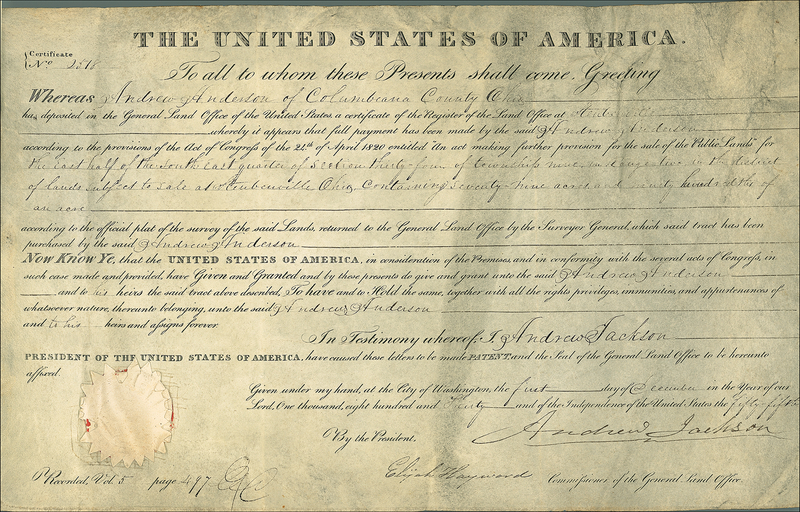 THE UNITED STATES OF AMERICA.
Certificate
No. 2518
To all to whom these Presents shall come, Greeting
Whereas Andrew Anderson of Columbeana County Ohio
has deposited in the General Land Office of the United States, a certificate of the Register of the Land Office at
whereby it appears that full payment has been made by the said Andrew Anderson
according to the provisions of the Act of Congress of the 24th of April 1820 entitled An act making further provision for the sale of the Public Lands for
the East half of the South East quarter of Section thirty four of township nine in range two in the district
of lands subject to sale at Steubenville Ohio, Containing seventy nine acres and ninety hundredths of
an acre
according to the official plat of the survey of the said Lands, returned to the General Land Office by the Surveyor General, which said tract has been
purchased by the said Andrew Anderson
Now Know Ye, that the UNITED STATES OF AMERICA, in consideration of the Premises, and in conformity with the several acts of Congress, in
such case made and provided, have Given and Granted and by these presents do give and grant unto the said Andrew Anderson
and to his heirs the said tract above described, To have and to Hold the same, together with all the rights privileges, immunities, and appurtenances of
whatsoever nature, thereunto belonging, unto the said Andrew Anderson
and to his heirs and assigns forever.
In Testimony whereof, I Andrew Jackson
PRESIDENT OF THE UNITED STATES OF AMERICA, have caused these letters to be made PATENT, and the Seal of the General Land Office to be hereunto
affixed.
Given under my hand, at the City of Washington, the first day of December in the Year of our
Lord, One thousand, eight hundred and thirty and of the Independence of the United States the fifty fifth
Andrew Jackson
By the President.
Elijah Hayward Commissioner of the General Land Office.
Recorded, Vol. 5 page 497